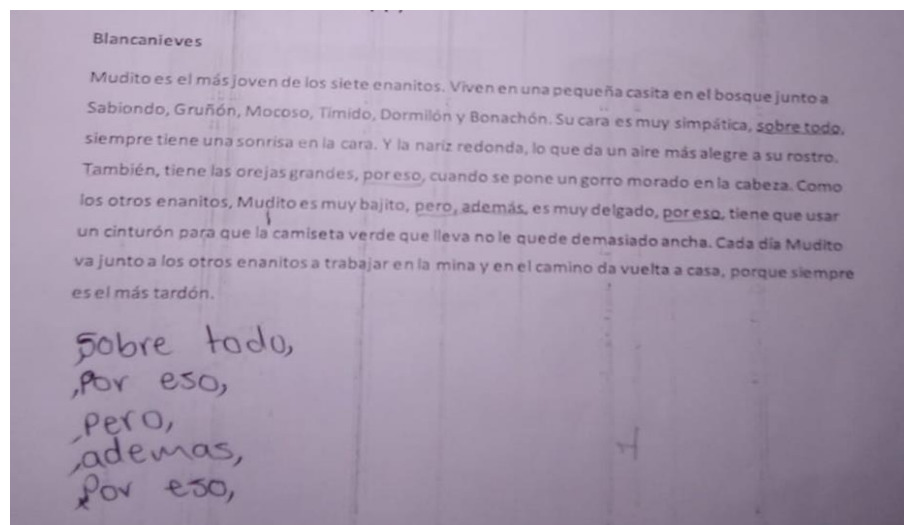 Blancanieves
Mudito es el más joven de los siete enanitos. Viven en una pequeña casita en el bosque junto a
Sabiondo, Gruñón, Mocoso, Timido, Dormilón y Bonachón. Su cara es muy simpática, sobre todo,
siempre tiene una sonrisa en la cara. Y la nariz redonda, lo que da un aire más alegre a su rostro.
También, tiene las orejas grandes, por eso, cuando se pone un gorro morado en la cabeza. Como
los otros enanitos, Mudito es muy bajito, pero, además, es muy delgado, por eso, tiene que usar
un cinturón para que la camiseta verde que lleva no le quede demasiado ancha. Cada día Mudito
va junto a los otros enanitos a trabajar en la mina y en el camino da vuelta a casa, porque siempre
es el más tardón.
,sobre todo,
,Por eso,
,pero,
,ademas,
,Por eso,